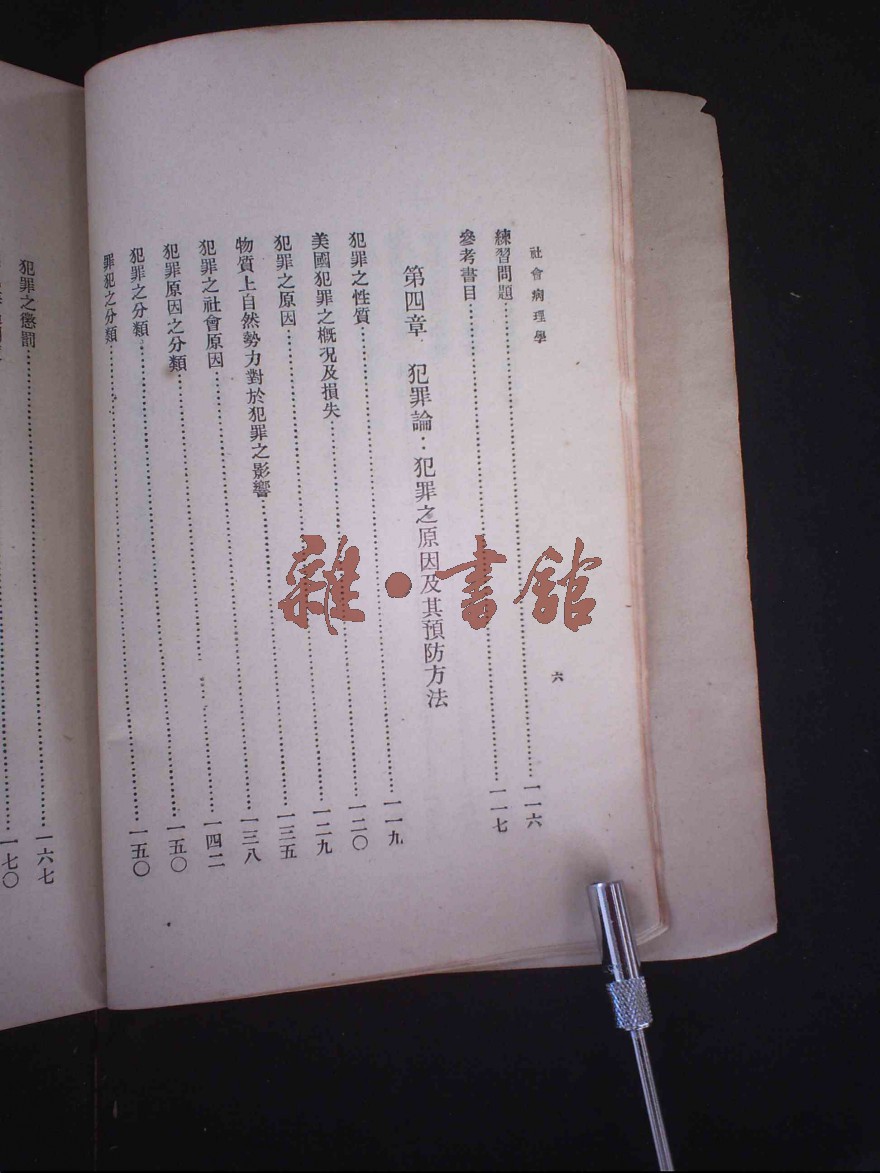 社會病理學
六
練習問題……一一六
參考書目……一一七
第四章 犯罪論：犯罪之原因及其預防方法
犯罪之性質……一一九
美國犯罪之概况及損失……一二〇
犯罪之原因……一二九
物質上自然勢力對於犯罪之影響……一三五
犯罪之社會原因……一三八
犯罪原因之分類……一四二
犯罪之分類……一五〇
罪犯之分類……一五〇
犯罪之懲罰……一六七
一七〇
雜·書館